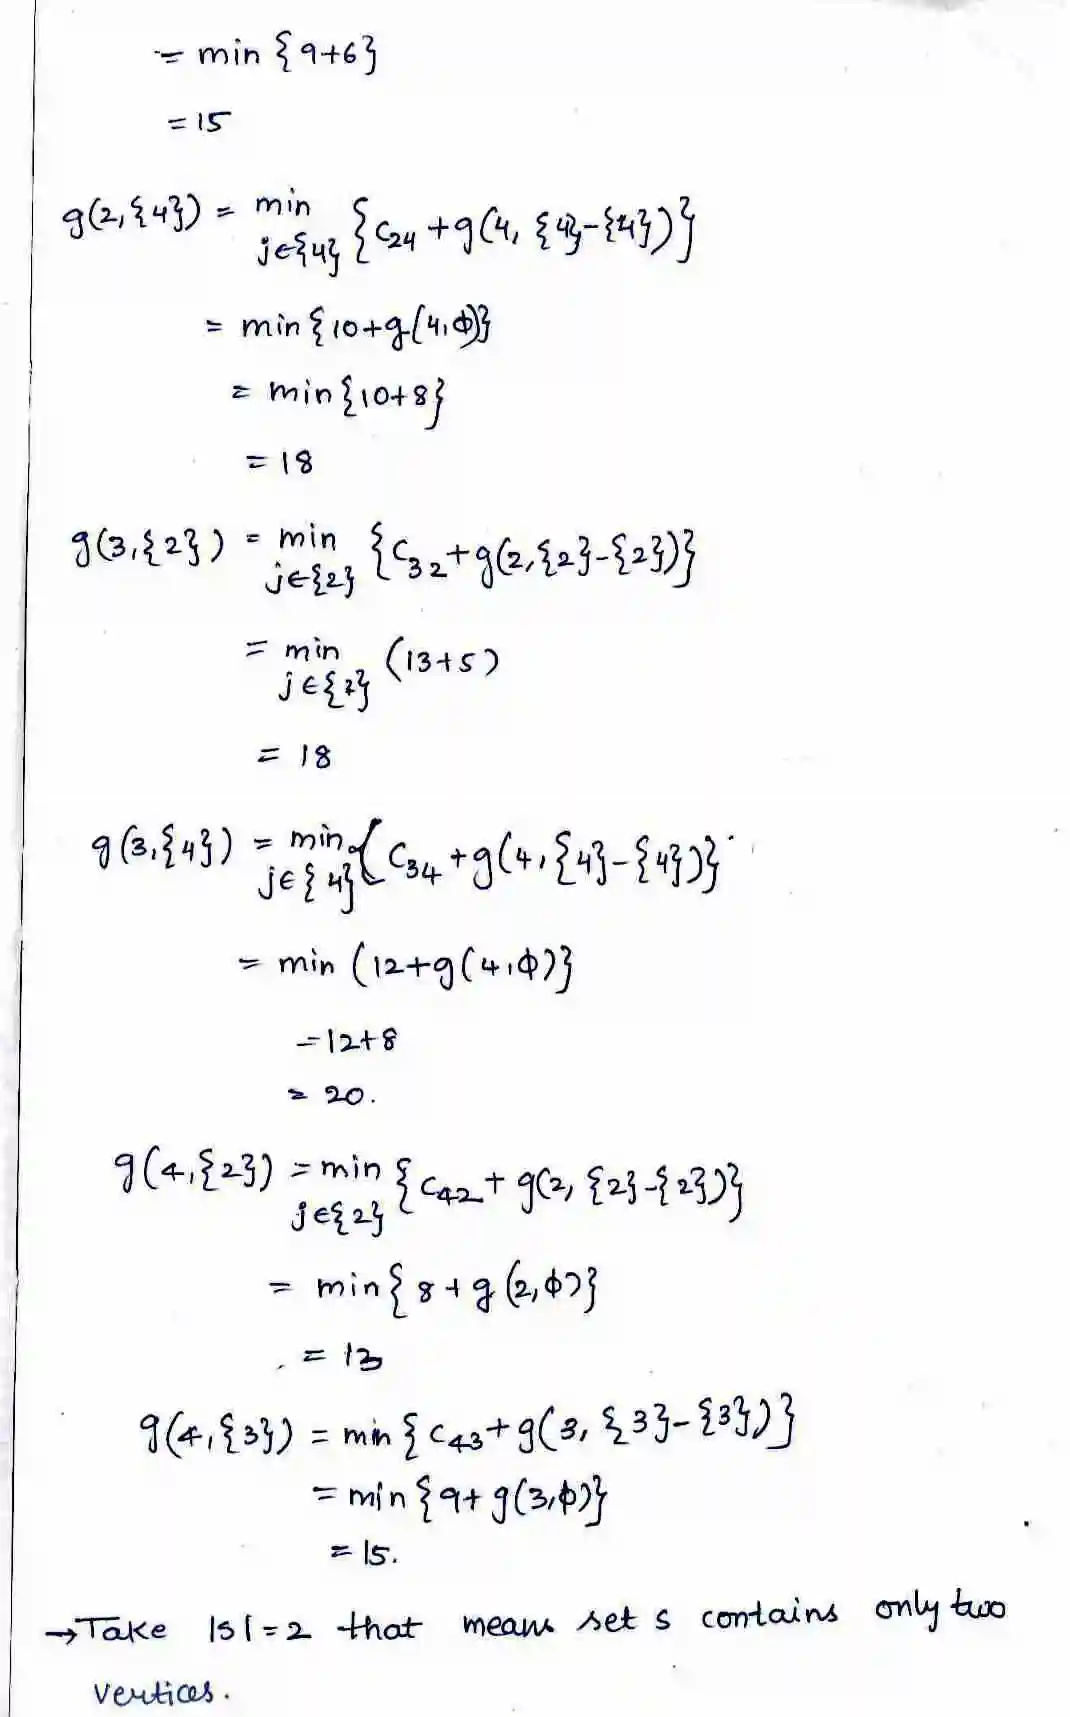 = min {9+6}
= 15
g(2,{4}) = min {C24 + g(4, {4}-{4})}
j∈{4}
= min {10+g(4,ϕ)}
= min {10+8}
= 18
g(3,{2}) = min {C32 + g(2,{2}-{2})}
j∈{2}
= min (13+5)
j∈{2}
= 18
g(3,{4}) = min { C34 + g(4,{4}-{4})}
j∈{4}
= min (12+g(4,ϕ)}
= 12+8
= 20.
g(4,{2}) = min { C42 + g(2, {2}-{2})}
j∈{2}
= min { 8 + g(2,ϕ)}
= 13
g(4,{3}) = min { C43 + g(3, {3}-{3})}
= min {9+ g(3,ϕ)}
= 15.
→ Take |S|=2 that means set s contains only two
vertices.